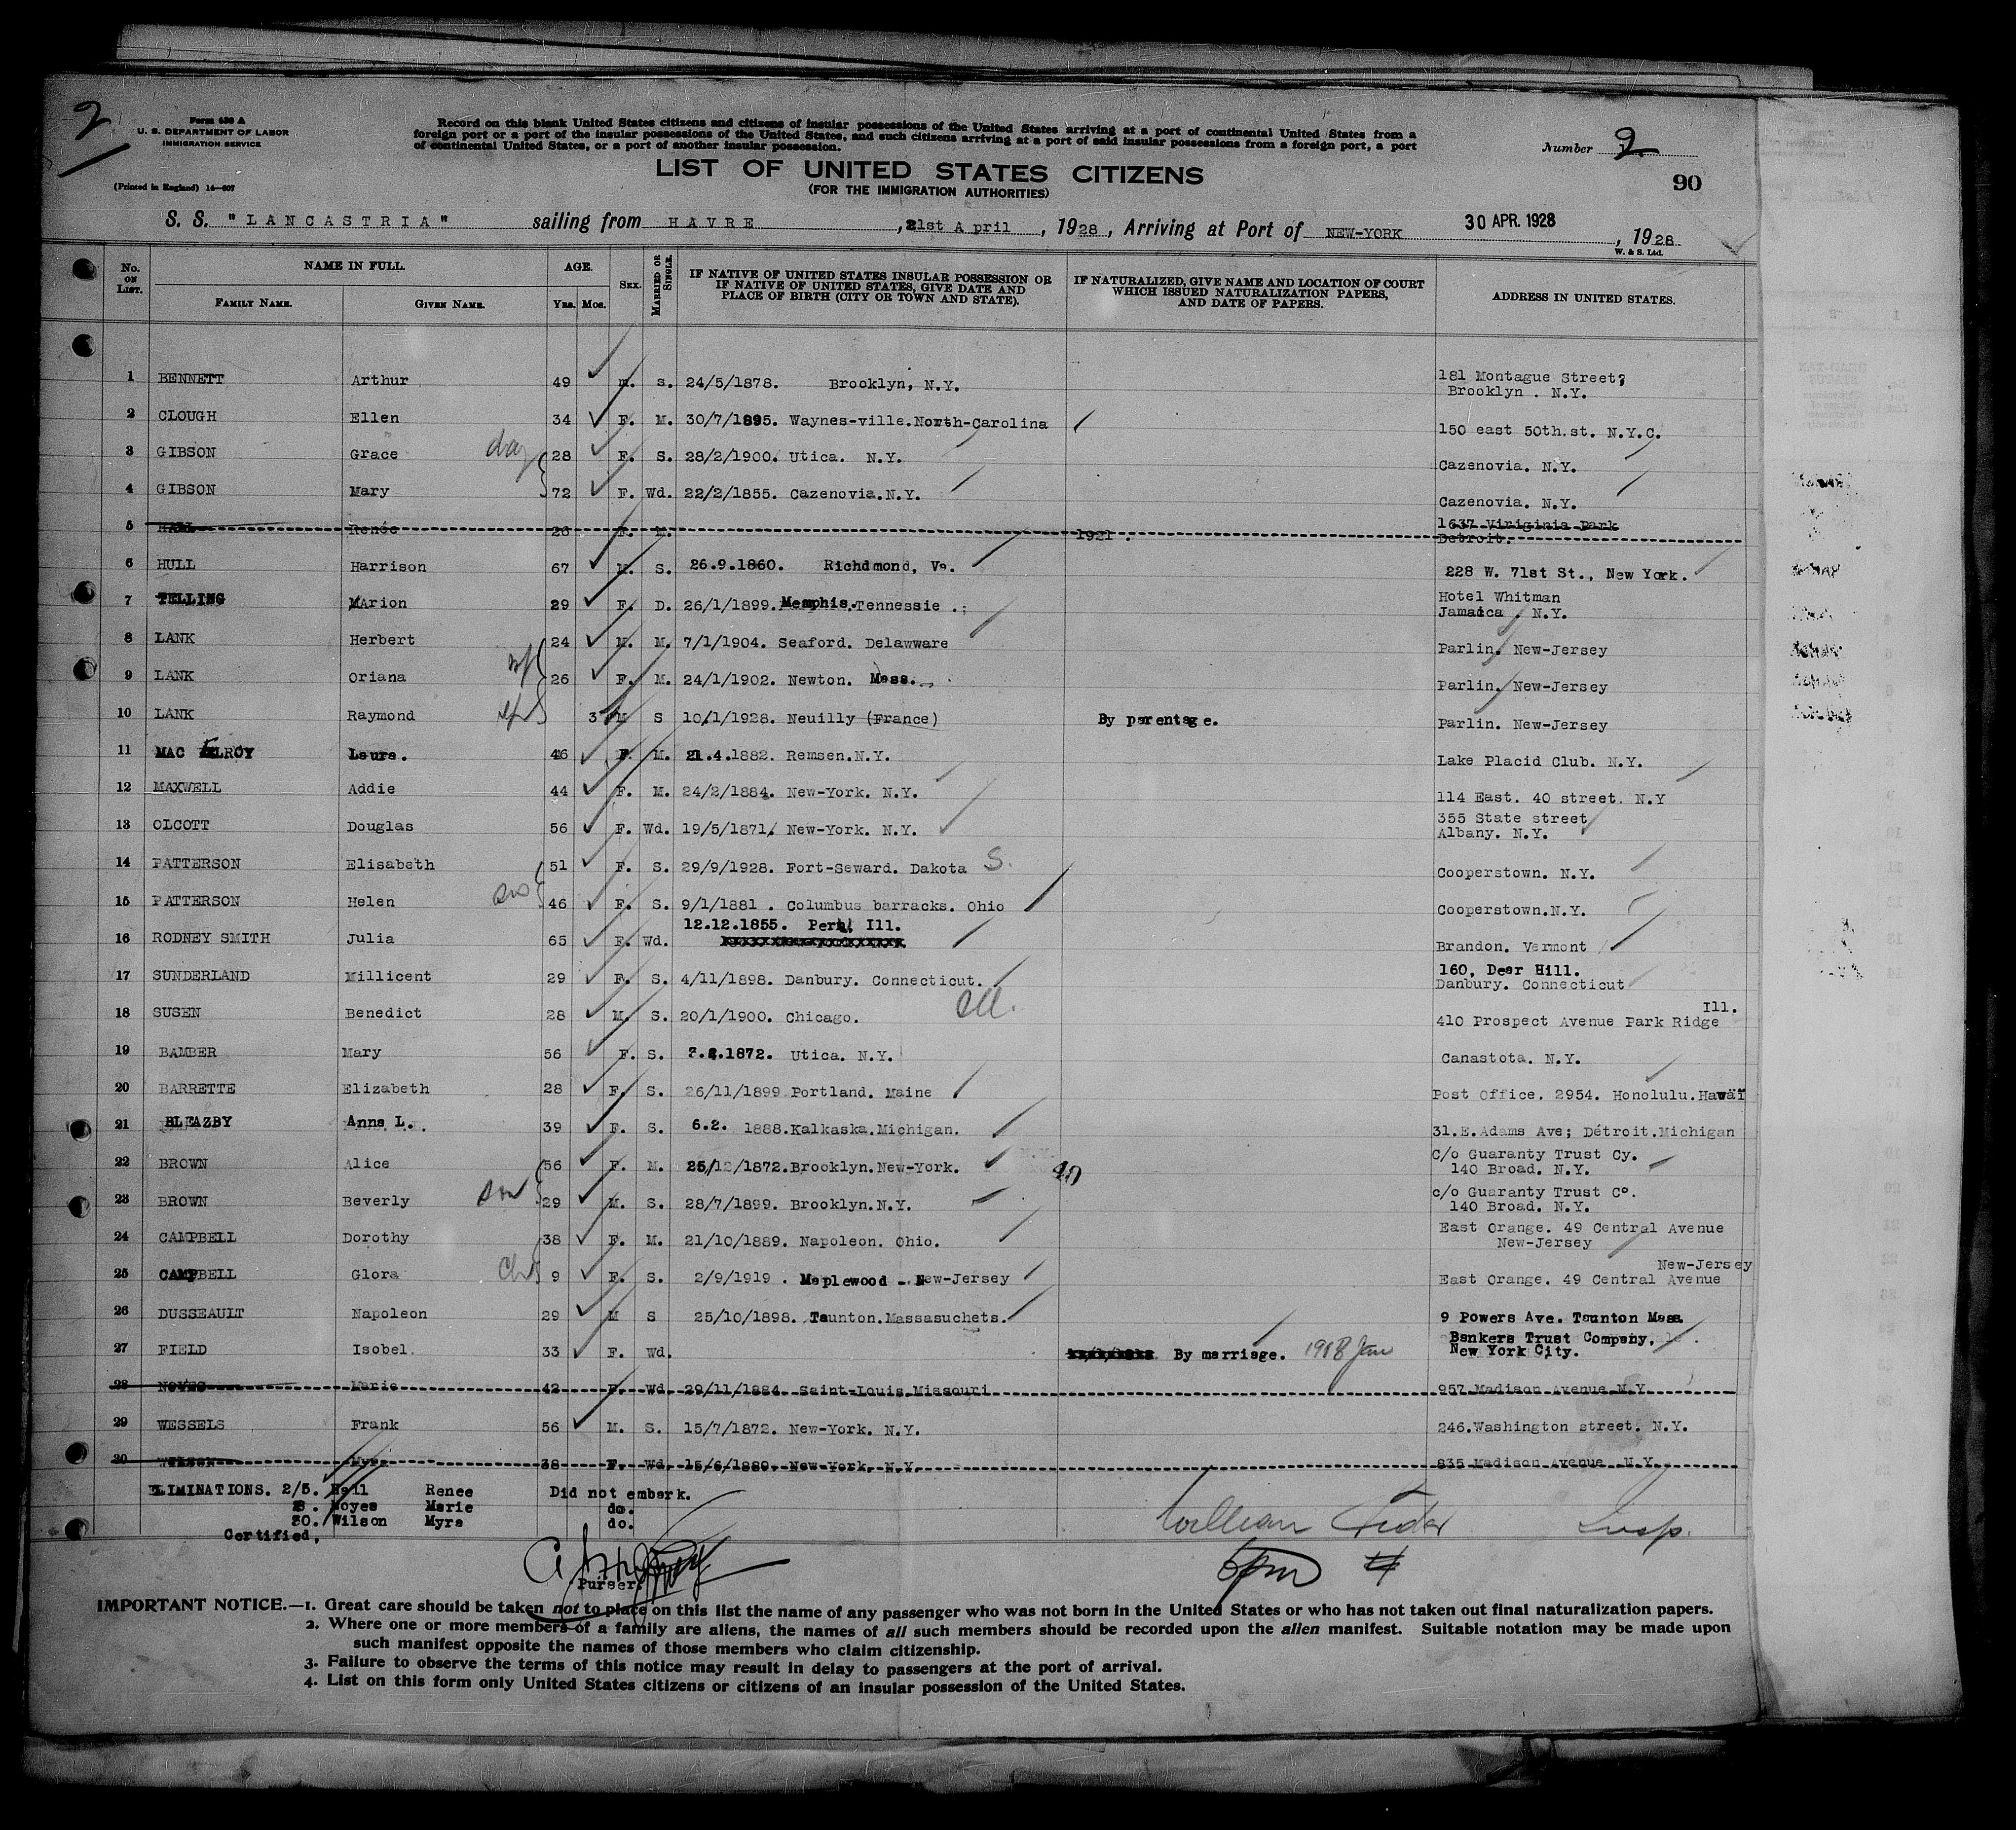 2
Form 630 A
U. S. DEPARTMENT OF LABOR
IMMIGRATION SERVICE
(Printed in England) 14—607
Record on this blank United States citizens and citizens of insular possessions of the United States arriving at a port of continental United States from a
foreign port or a port of the insular possessions of the United States, and such citizens arriving at a port of said insular possessions from a foreign port, a port
of continental United States, or a port of another insular possession.
Number 2
LIST OF UNITED STATES CITIZENS
(FOR THE IMMIGRATION AUTHORITIES)
90
S. S. "LANCASTRIA" sailing from HAVRE, 21st April, 1928, Arriving at Port of NEW-YORK 30 APR. 1928, 1928
W. & S. Ltd.
No. ON LIST. NAME IN FULL. FAMILY NAME. GIVEN NAME. AGE. Yrs. Mos. SEX. MARRIED OR SINGLE. IF NATIVE OF UNITED STATES INSULAR POSSESSION OR IF NATIVE OF UNITED STATES, GIVE DATE AND PLACE OF BIRTH (CITY OR TOWN AND STATE). IF NATURALIZED, GIVE NAME AND LOCATION OF COURT WHICH ISSUED NATURALIZATION PAPERS, AND DATE OF PAPERS. ADDRESS IN UNITED STATES.
1 BENNETT Arthur 49 m. s. 24/5/1878. Brooklyn, N.Y. 181 Montague Street; Brooklyn . N.Y.
2 CLOUGH Ellen 34 F. M. 30/7/1895. Waynes-ville.North-Carolina 150 east 50th.st. N.Y.C.
3 GIBSON Grace 28 F. S. 28/2/1900. Utica. N.Y. Cazenovia. N.Y.
4 GIBSON Mary 72 F. Wd. 22/2/1855. Cazenovia.N.Y. Cazenovia. N.Y.
5 HALL Renée 26 F. M. 1921 . 1637 Viriginia Park Detroit.
6 HULL Harrison 67 M. S. 26.9.1860. Richdmond, Va. 228 W. 71st St., New York.
7 TELLING MArion 29 F. D. 26/1/1899. Memphis.Tennessie .; Hotel Whitman Jamaica . N.Y.
8 LANK Herbert 24 M. M. 7/1/1904. Seaford. Delawware Parlin. New-Jersey
9 LANK Oriana 26 F. M. 24/1/1902. Newton. Mass. Parlin. New-Jersey
10 LANK Raymond 3 M S 10/1/1928. Neuilly (France) By parentage. Parlin. New-Jersey
11 MAC ELROY Laura. 46 F. M. 21.4.1882. Remsen.N.Y. Lake Placid Club. N.Y.
12 MAXWELL Addie 44 F. M. 24/2/1884. New-York. N.Y. 114 East. 40 street. N.Y
13 OLCOTT Douglas 56 F. Wd. 19/5/1871. New-York. N.Y. 355 State street Albany. N.Y.
14 PATTERSON Elisabeth 51 F. S. 29/9/1928. Fort-Seward. Dakota S. Cooperstown. N.Y.
15 PATTERSON Helen 46 F. S. 9/1/1881 . Columbus barracks. Ohio Cooperstown.N.Y.
16 RODNEY SMITH Julia 65 F. Wd. 12.12.1855. Peru Ill. Brandon. Vermont
17 SUNDERLAND Millicent 29 F. S. 4/11/1898. Danbury. Connecticut. 160, Deer Hill. Danbury. Connecticut
18 SUSEN Benedict 28 M. S. 20/1/1900. Chicago. Ill. 410 Prospect Avenue Park Ridge Ill.
19 BAMBER Mary 56 F. S. 1872. Utica. N.Y. Canastota. N.Y.
20 BARRETTE Elizabeth 28 F. S. 26/11/1899 Portland. Maine Post Office. 2954. Honolulu.Hawaï
21 BLEAZBY Anna L. 39 F. S. 6.2. 1888.Kalkaska.Michigan. 31.E.Adams Ave; Détroit.Michigan
22 BROWN Alice 56 F. M. 25/12/1872.Brooklyn.New-York. C/o Guaranty Trust Cy. 140 Broad. N.Y.
23 BROWN son Beverly 29 M. S. 28/7/1899. Brooklyn.N.Y. c/o Guaranty Trust C°. 140 Broad. N.Y.
24 CAMPBELL Dorothy 38 F. M. 21/10/1889. Napoleon. Ohio. East Orange. 49 Central Avenue New-Jersey
25 CAMPBELL Glora 9 F. S. 2/9/1919 . Maplewood - New-Jersey East Orange. 49 Central Avenue New-Jersey
26 DUSSEAULT Napoleon 29 M S 25/10/1898. Taunton.Massasuchets. 9 Powers Ave. Taunton Mass.
27 FIELD Isobel 33 F. Wd. By marriage. 1918 Jan Bankers Trust Company, New York City.
28 NOYES Marie 42 F. Wd. 29/11/1884. Saint-Louis Missouri 957 Madison Avenue N.Y.
29 WESSELS Frank 56 M. S. 15/7/1872. New-York. N.Y. 246.Washington street. N.Y.
30 WILSON Myra 38 F. Wd. 15/6/1889. New-York. N.Y. 835 Madison Avenue N.Y.
ELIMINATIONS. 2/5. Hall Renee Did not embark.
28. Noyes Marie do.
30. Wilson Myra do.
Certified,
Purser.
Insp.
IMPORTANT NOTICE.—1. Great care should be taken not to place on this list the name of any passenger who was not born in the United States or who has not taken out final naturalization papers.
2. Where one or more members of a family are aliens, the names of all such members should be recorded upon the alien manifest. Suitable notation may be made upon
such manifest opposite the names of those members who claim citizenship.
3. Failure to observe the terms of this notice may result in delay to passengers at the port of arrival.
4. List on this form only United States citizens or citizens of an insular possession of the United States.